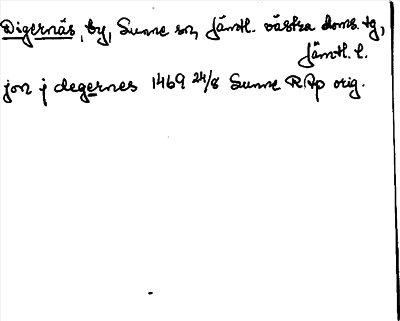 Digernäs, by, Sunne sn, Jämtl. västra doms. tg,
Jämtl. l.
jon j degernes 1469 24/8 Sunne RAp orig.